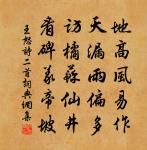 地高風易作
天漏雨偏多
訪橘蘇仙井
看碑義帝坡
王恕詩二首詞典網集